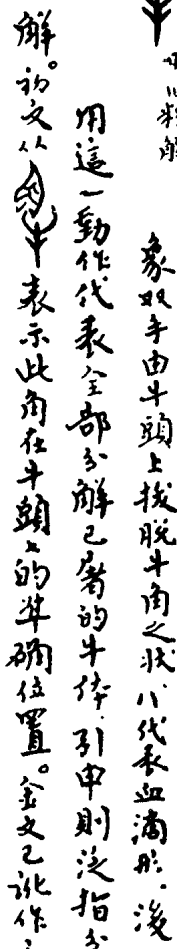 象双手由牛頭上拔脫牛角之狀，八代表血滴形。後
用這一動作代表全部分解已屠的牛体。引申則泛指分
解。初文从
表示此角在牛頭上的準确位置。金文已訛作